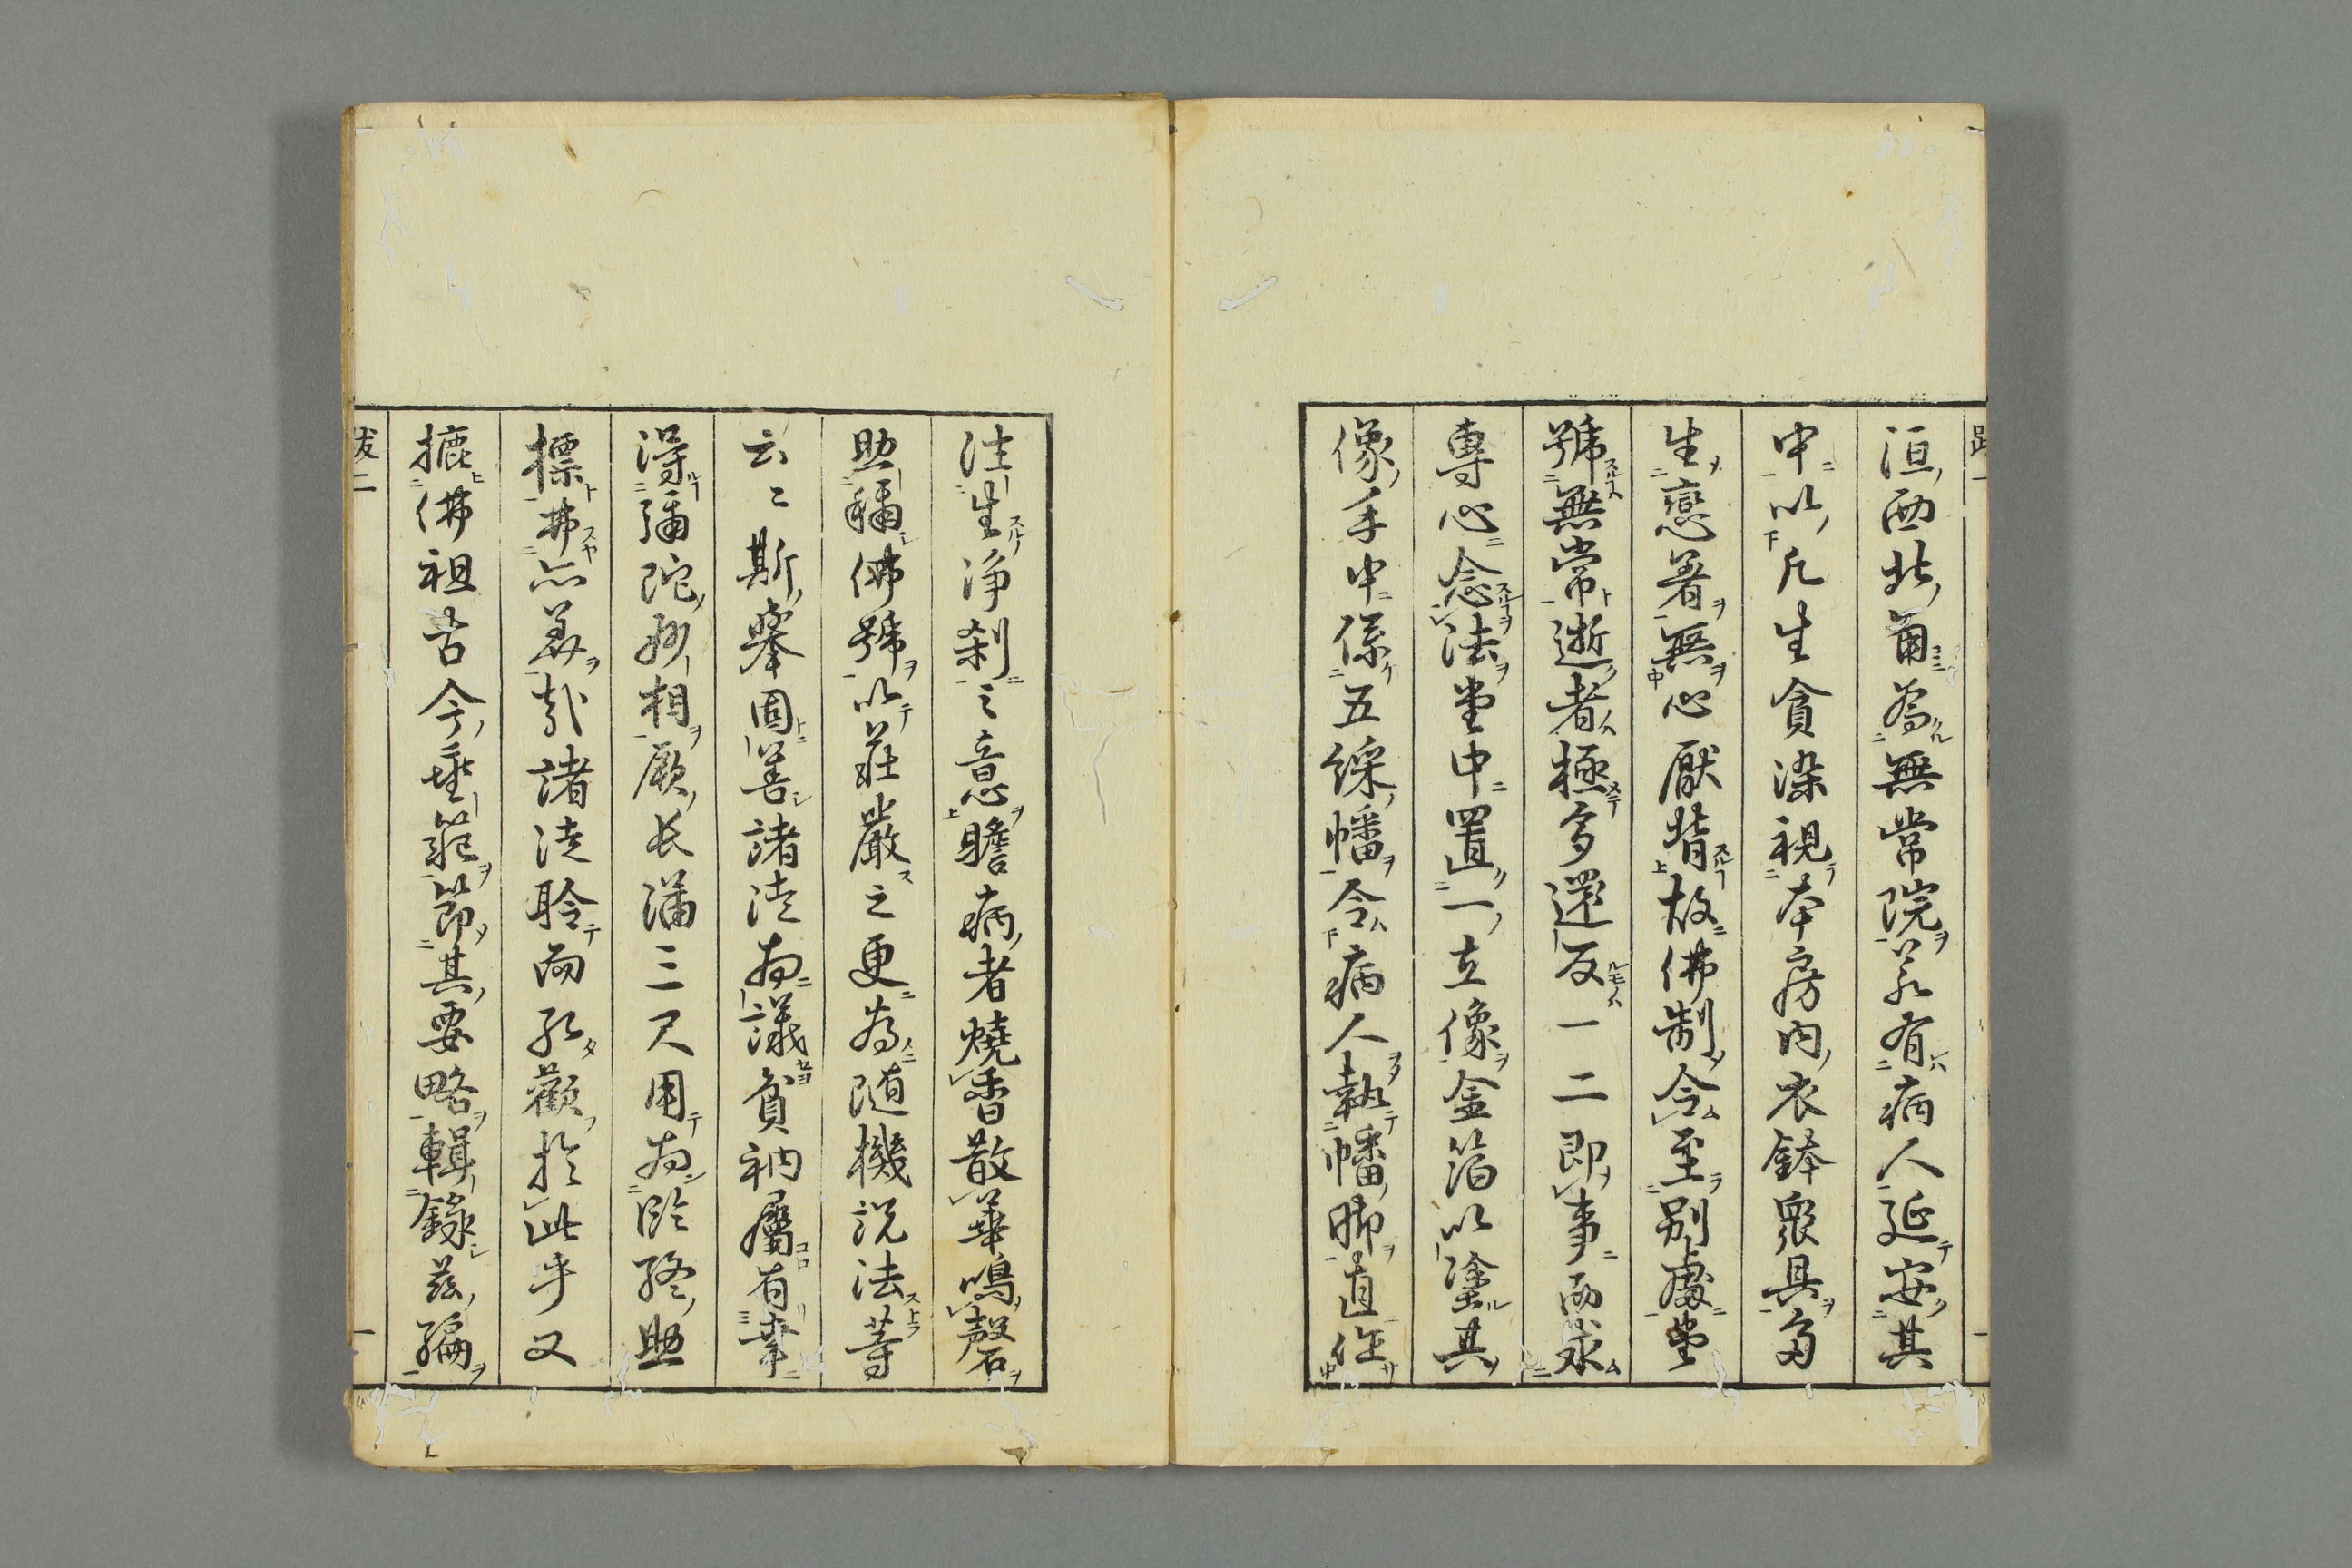 洹西北角為無常院若有病人延安其
中以凡生貪染視本房內衣鉢眾具多
生戀著無心厭背故佛制令至別處堂
號無常逝者極多還反一二即事而求
專心念法堂中置一立像金箔以塗其
像手中係五綵幡令病人執幡脚直作
往生淨刹之意瞻病者燒香散華鳴磬
助稱佛號以莊嚴之更為隨機說法等
云云斯舉固善諸法為議貧衲屬有幸
得彌陀妙相厥長滿三尺用為臨終助
標弗亦美哉諸徒聆而致歡於此乎又
摭佛祖古今垂範節其要略輯錄茲編
跋二